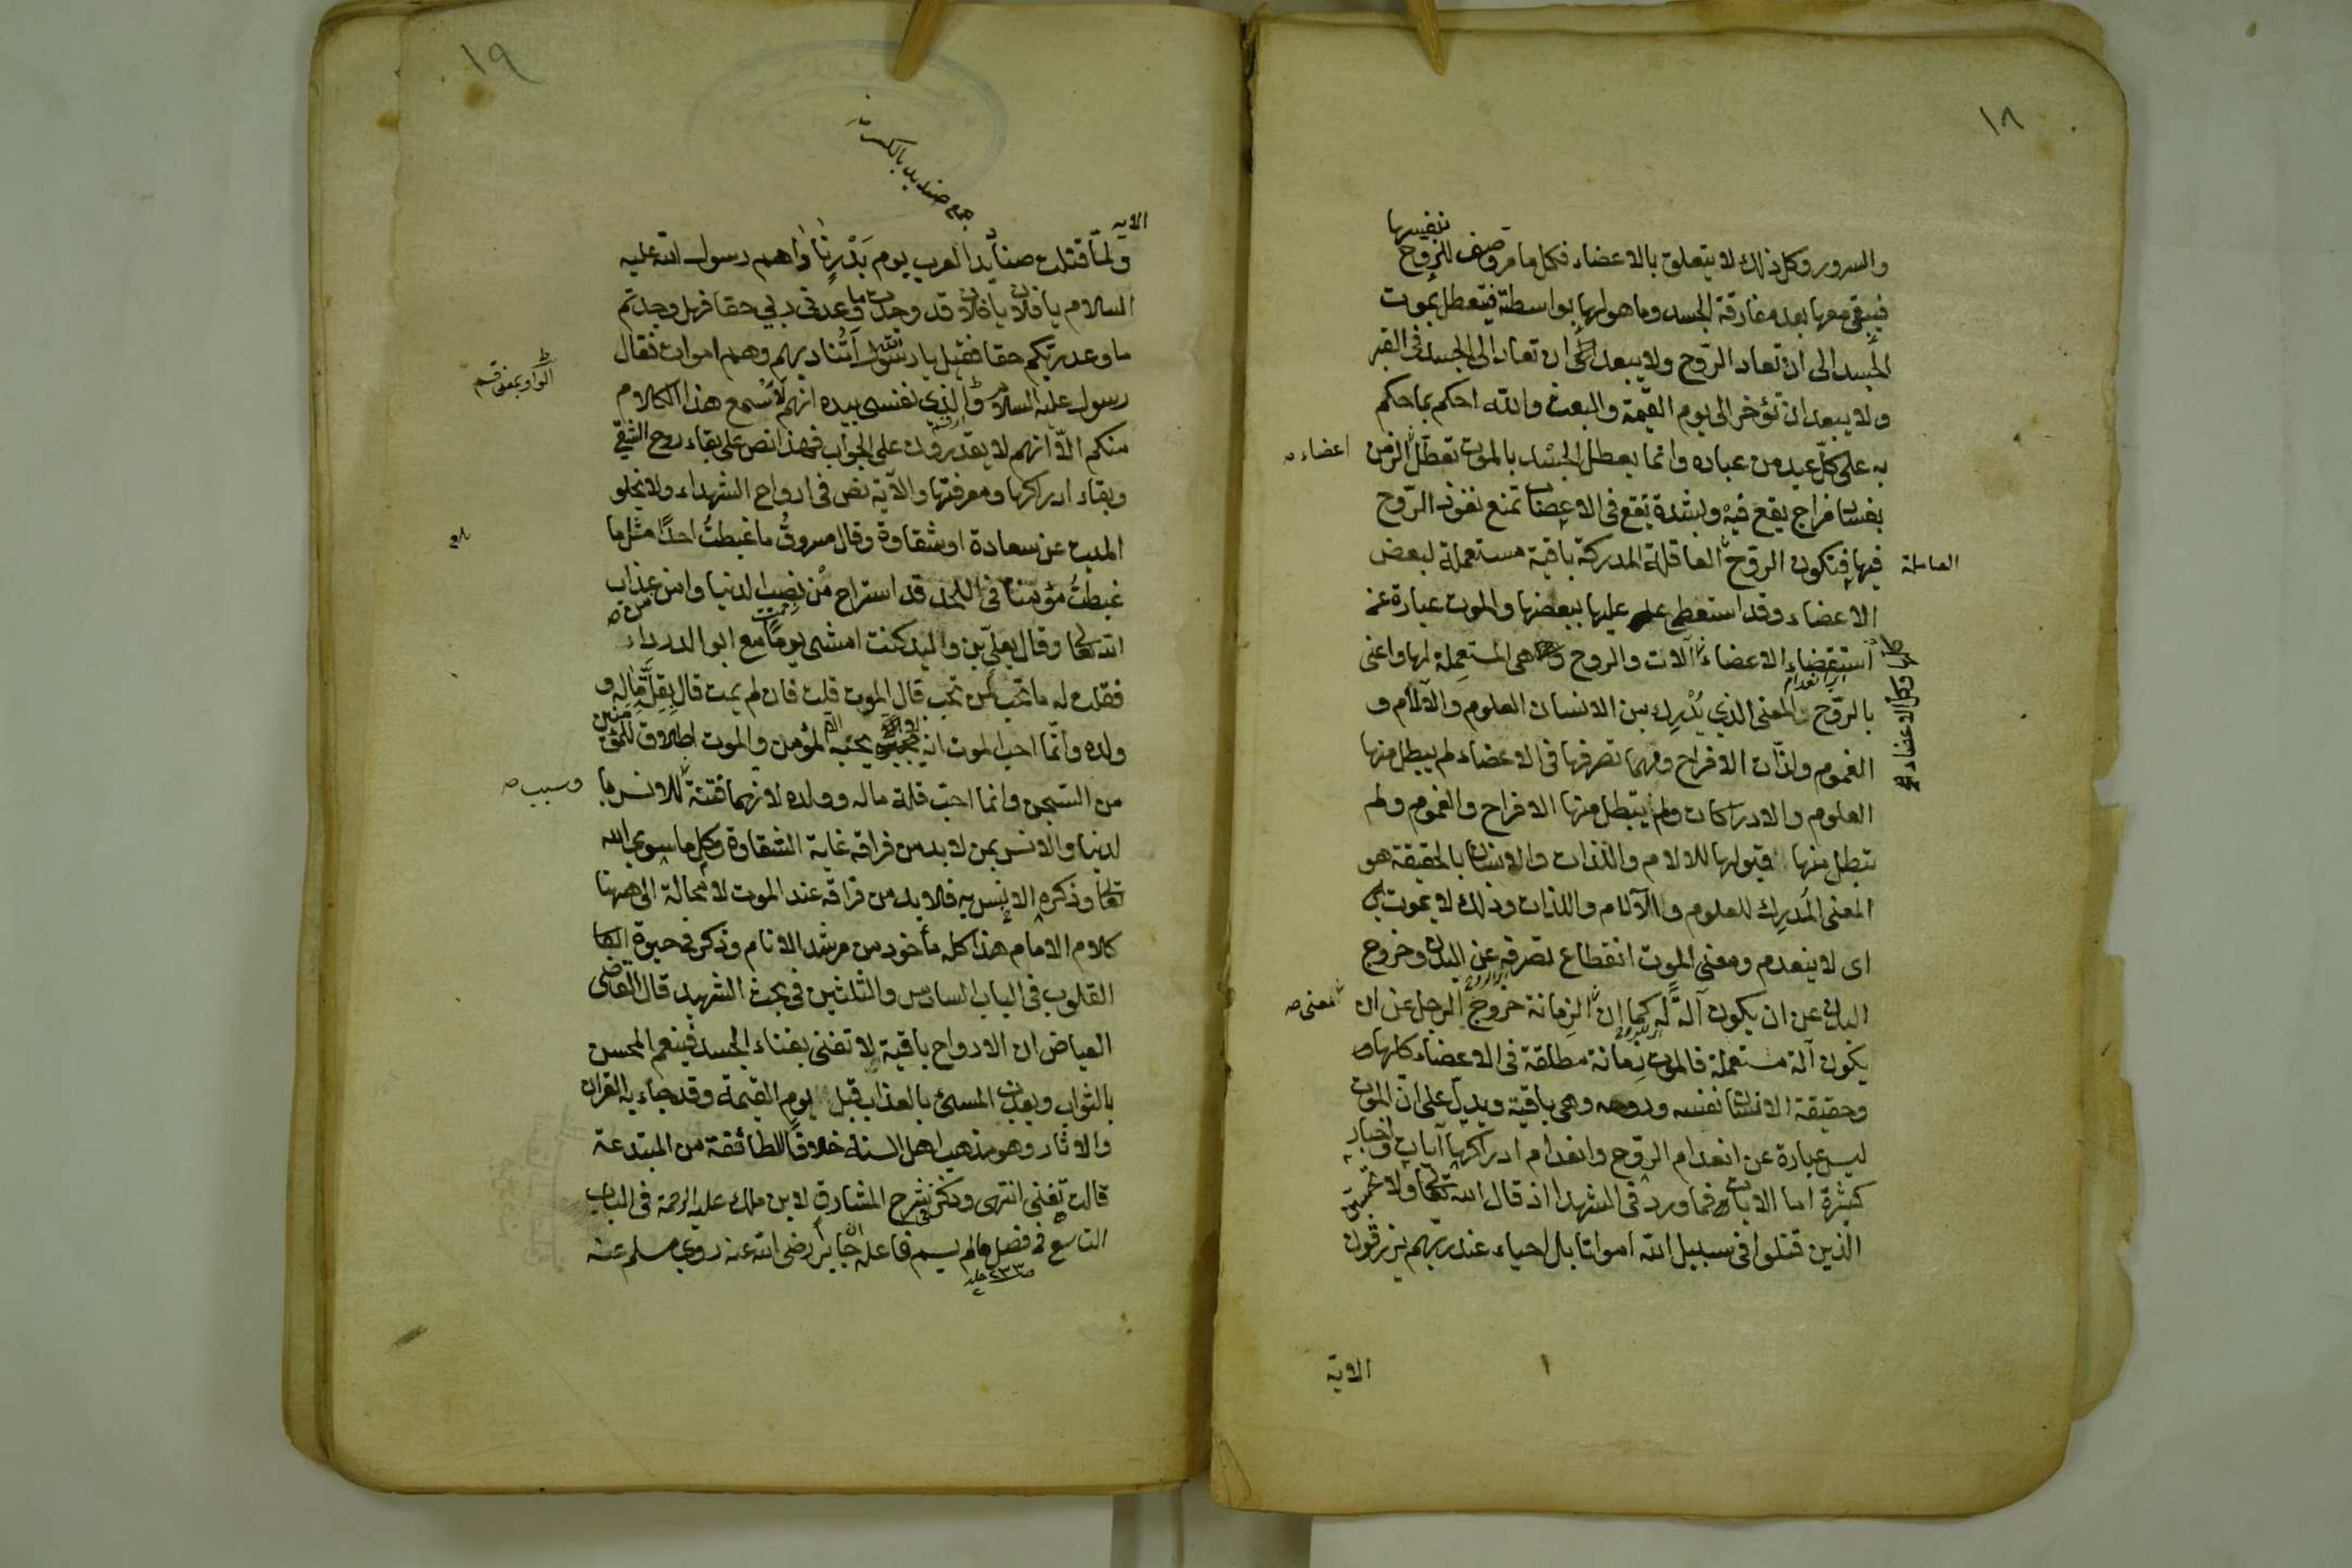 ١٨
بنفسها
والسرور وكل ذلك لا يتعلق بالاعضاء فكل ما هو وصف للروح
فيبقى معها بعد مفارقة الجسد وما هو لها بواسطة فيتعطل بموت
الجسد الى ان تعاد الروح ولا يبعد ان تعاد الى الجسد فى القبر
ولا يبعد ان تؤخر الى يوم القيمة والبعث والله احكم بما حكم
به على كل عبد من عباده وانما يعطل الجسد بالموت تعطل الزمن
اعضاء
بفساد مزاج يقع فيه وبشدة تقع فى الاعصاب تمنع نفوذ الروح
فيها فتكون الروح العاقلة المدركة باقية مستعملة لبعض
العاملة
الاعضاء وقد استعصى عليها بعضها والموت عبارة عن
استعصاء الاعضاء آلات والروح هى المستعملة لها واعنى
وكل الاعضاء
بالروح المعنى الذي يدرك من الانسان العلوم والآلام و
الغموم ولذات الافراح ومهما تصرفها فى الاعضاء لم يبطل منها
العلوم والادراكات ولم يبطل منها الافراح والغموم ولم
تبطل منها قبولها للالام واللذات والانسان بالحقيقة هو
المعنى المدرك للعلوم والآلام واللذات وذلك لا يموت
اى لا ينعدم ومعنى الموت انقطاع تصرفه عن البدن وخروج
البدن عن ان يكون آلة له كما ان الزمانة خروج الرجل عن ان
معنى
يكون آلة مستعملة فالموت زمانة مطلقة فى الاعضاء كلها و
وحقيقة الانسان نفسه وروحه وهى باقية ويدل على ان الموت
ليس عبارة عن انعدام الروح وانعدام ادراكها آيات واخبار
كثيرة اما الايات فما ورد فى الشهدا اذ قال الله تعالى ولا تحسبن
الذين قتلوا فى سبيل الله امواتا بل احياء عند ربهم يرزقون
الاية
١٩
جمع صنديد بالكسر
الاية
ولما قتلت صناديد العرب يوم بدر ناداهم رسول الله عليه
السلام يا فلان يا فلان قد وجدت ما وعدنى ربي حقا فهل وجدتم
ما وعد ربكم حقا فقيل يا رسول الله أتناديهم وهم اموات فقال
الواو بمعنى قسم
رسول عليه السلام والذي نفسى بيده انهم لأسمع هذا الكلام
منكم الا انهم لا يقدرون على الجواب فهذا نص على بقاء روح الشقي
وبقاء ادراكها ومعرفتها والآية نص فى ارواح الشهداء ولا يخلو
الميت عن سعادة او شقاوة وقال مسروق ما غبطت احدا مثل ما
غبطت مؤمنا فى اللحد قد استراح من نصب الدنيا وامن عذاب
الله تعالى وقال يعلى بن والميد كنت امشى يوما مع ابو الدرداء
فقلت له ما تحب لمن تحب قال الموت قلت فان لم يمت قال يقل ماله و
ولده وانما احب الموت انه يحبه المؤمن والموت اطلاق للمؤمنين
من السجن وانما احب قلة ماله وولده لانهما فتنة للانس با
وسبب
لدنيا والانس بمن لابد من فراقه غاية الشقاوة وكل ما سوى الله
تعالى وذكره الانس به فلا بد من فراقه عند الموت لا محالة الى ههنا
كلام الامام هذا كله مأخوذ من مرشد الانام وذكر فى حيوة
القلوب فى الباب السادس والثلثين فى بحث الشهيد قال القاضى
العياض ان الارواح باقية لا تفنى بفناء الجسد فينعم المحسن
بالثواب ويعذب المسئ بالعذاب قبل يوم القيمة وقد جاء به القران
والاثار وهو مذهب اهل السنة خلافا للطائفة من المبتدعة
قالت تفنى انتهى وذكر فى شرح المشارق لابن ملك عليه الرحمة فى الباب
التاسع فى فصل مالم يسم فاعله جابر رضى الله عنه روى مسلم عنه